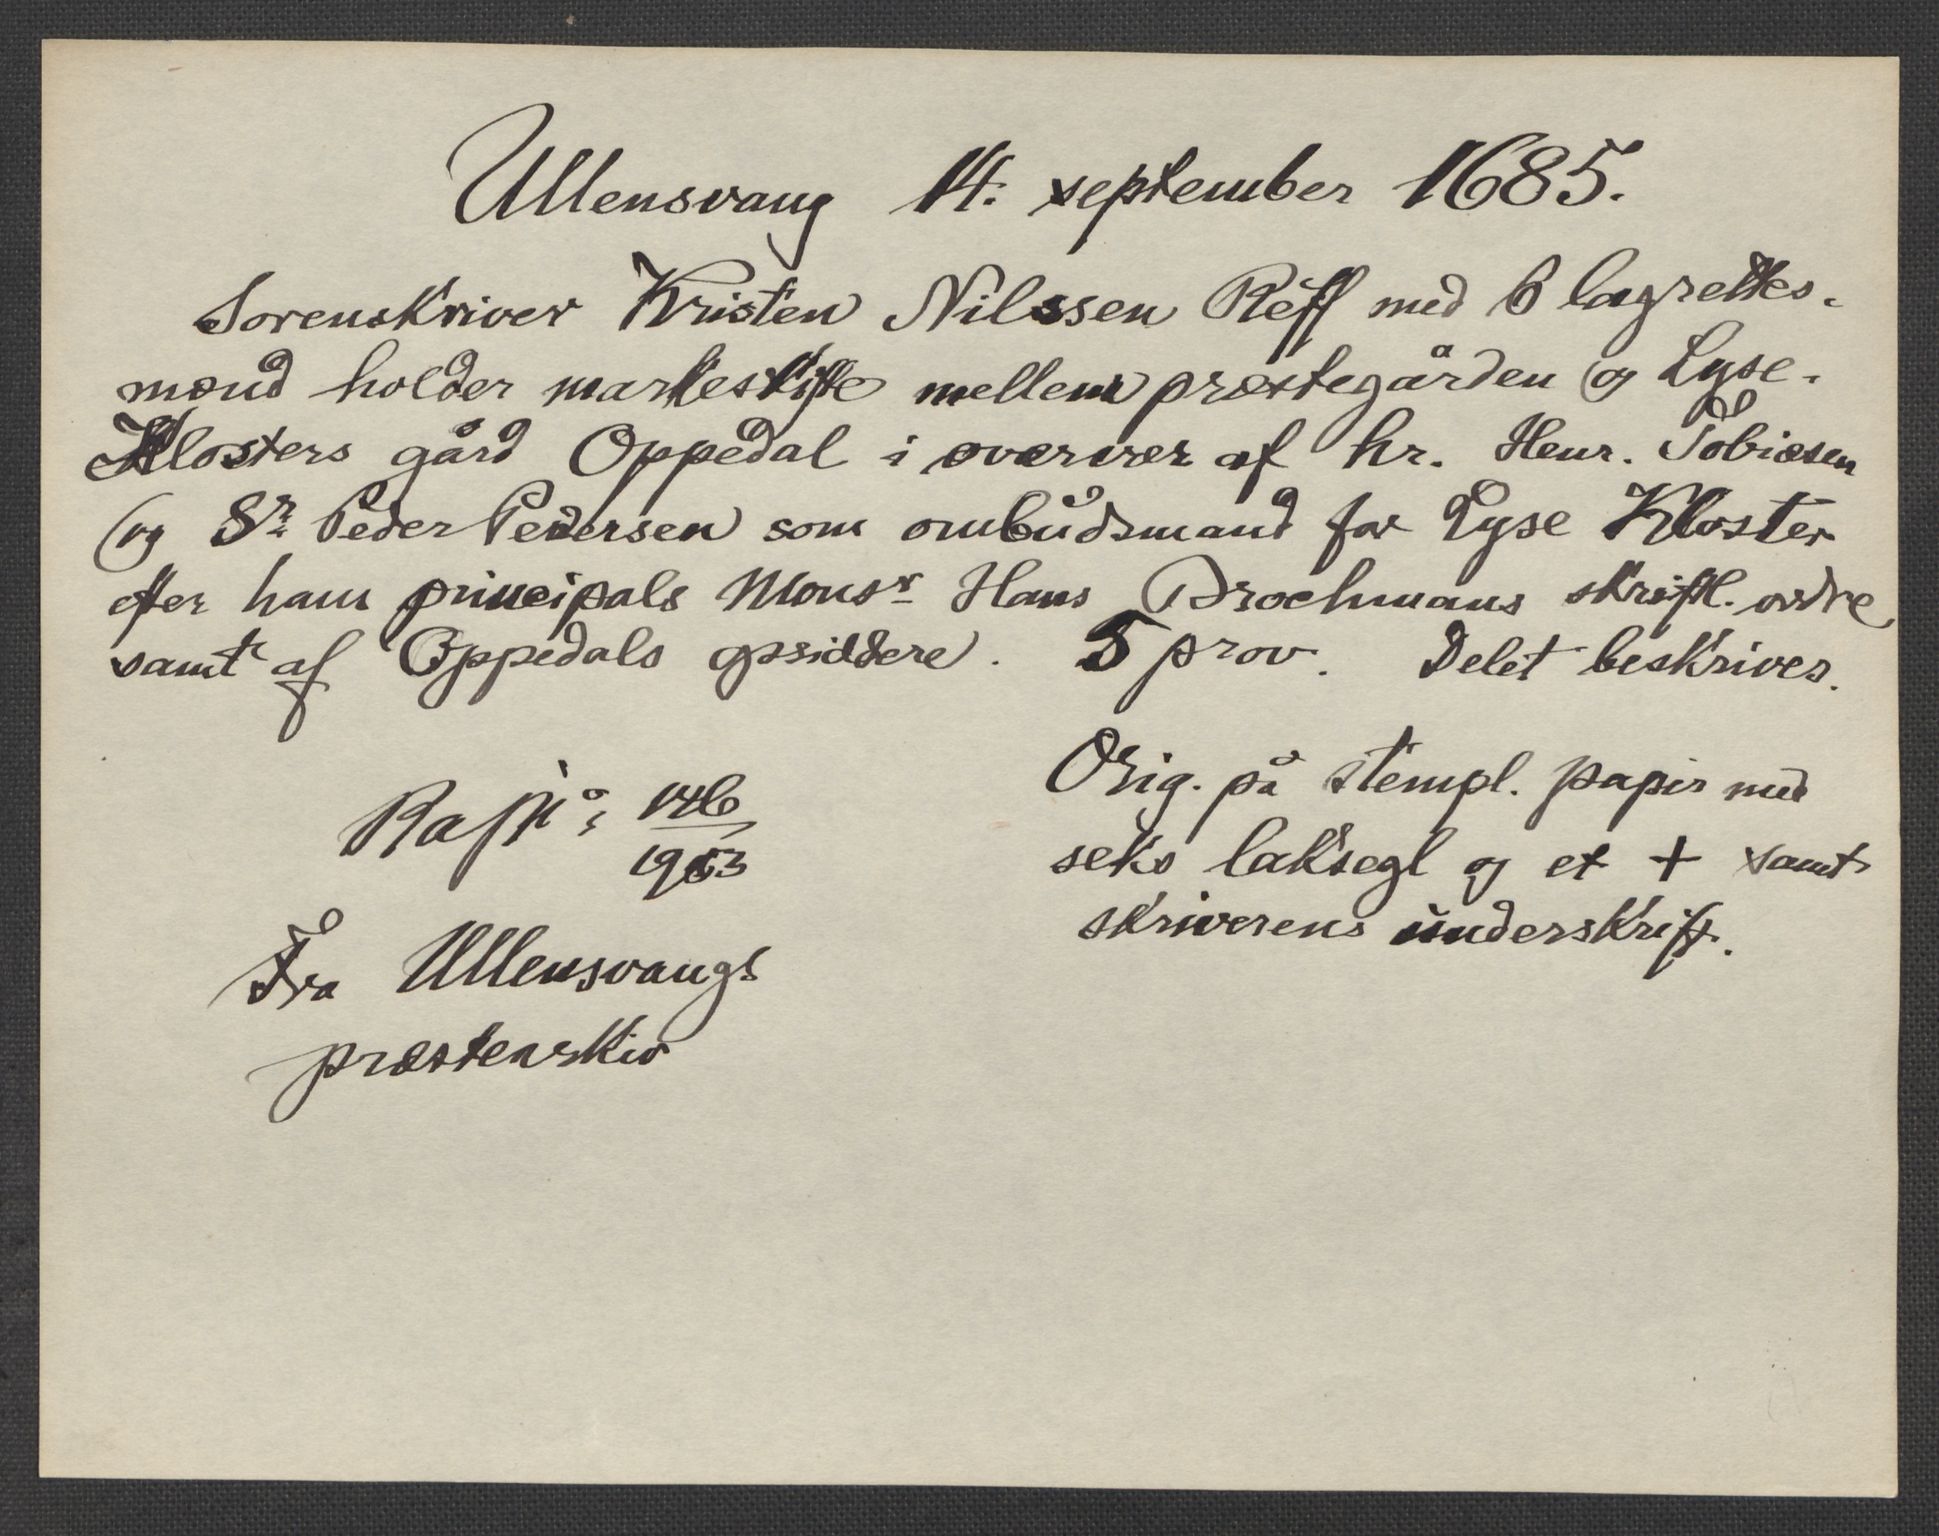 Ullensvang 14. september 1685.
Sorenskriver Kristen Nilssen Reff med 6 lagrettes-
mænd holder markeskifte mellem præstegården og Lyse-
Klosters gård Oppedal i overvær af hr. Henr. Tobiesen
og Sr. Peder Pedersen som ombudsmand for Lyse Kloster
efter hans principals Monsr Hans Brochmans skriftl. ordre
samt af Oppedals opsiddere. 5 prov. Delet beskrives.
Orig. på stempl. papir med
seks laksegl og et + samt
skriverens underskrift.
146
Fra Ullensvangs
præstearkiv